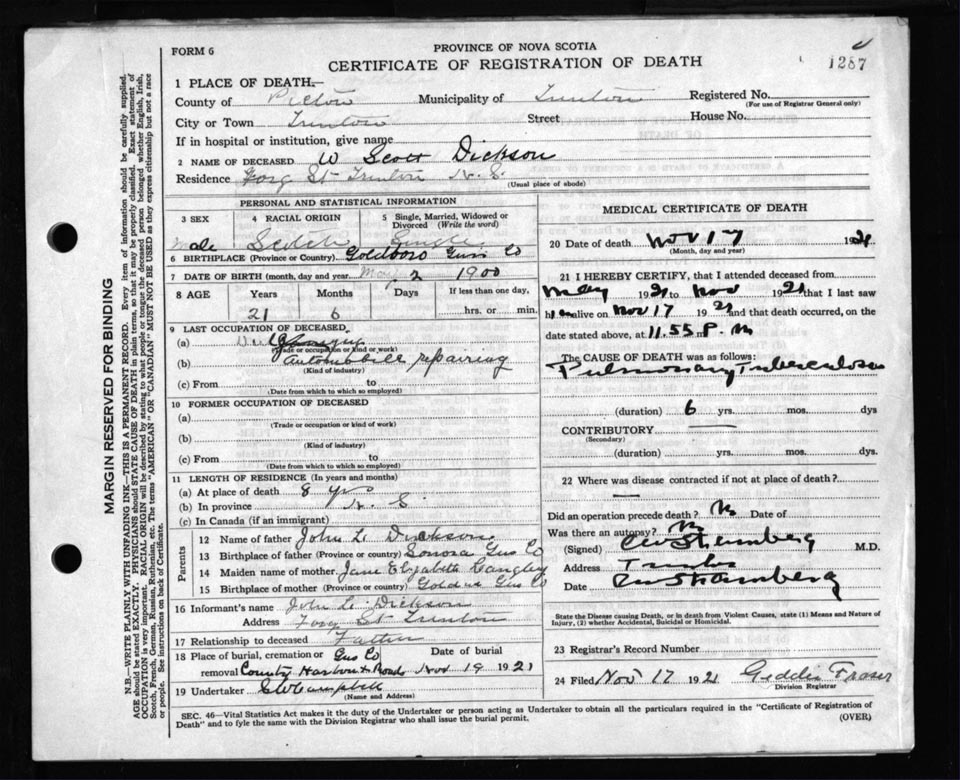 FORM 6
PROVINCE OF NOVA SCOTIA
CERTIFICATE OF REGISTRATION OF DEATH
1287
1 PLACE OF DEATH—
County of Pictou Municipality of Trenton Registered No.
(For use of Registrar General only)
City or Town Trenton Street House No.
If in hospital or institution, give name
2 NAME OF DECEASED W Scott Dickson
Residence Forg St Trenton N.S.
(Usual place of abode)
PERSONAL AND STATISTICAL INFORMATION
3 SEX 4 RACIAL ORIGIN 5 Single, Married, Widowed or Divorced (Write the word)
male Scotch Single
6 BIRTHPLACE (Province or Country) Goldboro Guys Co
7 DATE OF BIRTH (month, day and year. May 2 1900
8 AGE Years Months Days If less than one day,
21 6 hrs. or min.
9 LAST OCCUPATION OF DECEASED.
(a)
(Trade or occupation or kind or work)
(b) automobile repairing
(Kind of industry)
(c) From to
(Date from which to which so employed)
10 FORMER OCCUPATION OF DECEASED
(a)
(Trade or occupation or kind of work)
(b)
(Kind of industry)
(c) From to
(Date from which to which so employed)
11 LENGTH OF RESIDENCE (In years and months)
(a) At place of death 8 yrs
(b) In province N. S.
(c) In Canada (if an immigrant)
Parents
12 Name of father John L. Dickson
13 Birthplace of father (Province or country) Sonora Gus Co
14 Maiden name of mother Jane Elizabeth Langley
15 Birthplace of mother (Province or country) Gus Co
16 Informant's name John L. Dickson
Address Forg St Trenton
17 Relationship to deceased Father
18 Place of burial, cremation or removal Gus Co Country Harbor X Roads Date of burial Nov 19 1921
19 Undertaker Campbell
(Name and Address)
MEDICAL CERTIFICATE OF DEATH
20 Date of death Nov 17 1921
(Month, day and year)
21 I HEREBY CERTIFY, that I attended deceased from
May 1921 to Nov 1921 that I last saw
him alive on Nov 17 1921 and that death occurred, on the
date stated above, at 11.55 P. m
The CAUSE OF DEATH was as follows:
Pulmonary Tuberculosis
(duration) 6 yrs. mos. dys
CONTRIBUTORY
(Secondary)
(duration) yrs. mos. dys.
22 Where was disease contracted if not at place of death?
Did an operation precede death? No Date of
Was there an autopsy? No
(Signed) M.D.
Address
Date
State the Disease causing Death, or in death from Violent Causes, state (1) Means and Nature of
Injury, (2) whether Accidental, Suicidal or Homicidal.
23 Registrar's Record Number
24 Filed Nov 17 1921 Geddie Fraser
Division Registrar
SEC. 46—Vital Statistics Act makes it the duty of the Undertaker or person acting as Undertaker to obtain all the particulars required in the "Certificate of Registration of
Death" and to fyle the same with the Division Registrar who shall issue the burial permit.
(OVER)
MARGIN RESERVED FOR BINDING
N.B.—WRITE PLAINLY WITH UNFADING INK—THIS IS A PERMANENT RECORD. Every item of information should be carefully supplied.
AGE should be stated EXACTLY. PHYSICIANS should STATE CAUSE OF DEATH in plain terms, so that it may be properly classified. Exact statement of
OCCUPATION is very important. RACIAL ORIGIN will be described by stating to which people or tongue the deceased person belonged whether English, Irish,
Scotch, French, German, Russian, Ruthenian, etc. The terms "AMERICAN" or "CANADIAN" MUST NOT BE USED as they express citizenship but not a race
or people. See instructions on back of Certificate.